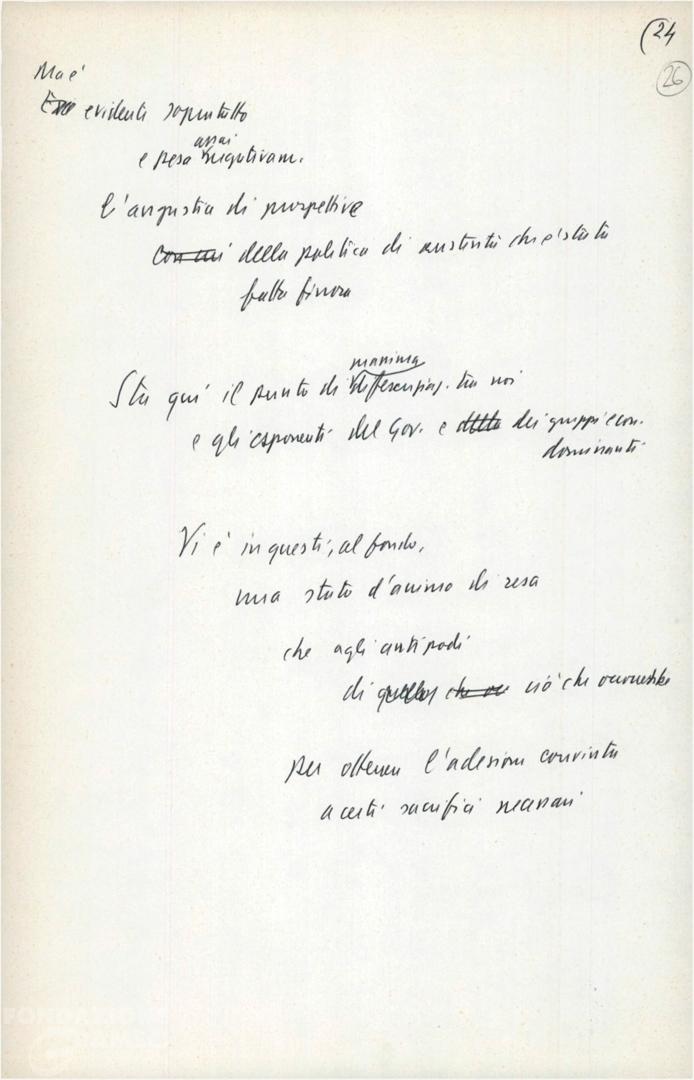 (24
26
Ma è
evidente soprattutto
assai
e pesa negativam.
l'angustia di prospettive
della politica di austerità che è stata
fatta finora
massima
Sta qui il punto di differenziaz. tra noi
e gli esponenti del Gov. e dei gruppi econ.
dominanti
Vi è in questi, al fondo,
uno stato d'animo di resa
che agli antipodi
di ciò che occorrerebbe
per ottenere l'adesione convinta
a certi sacrifici necessari